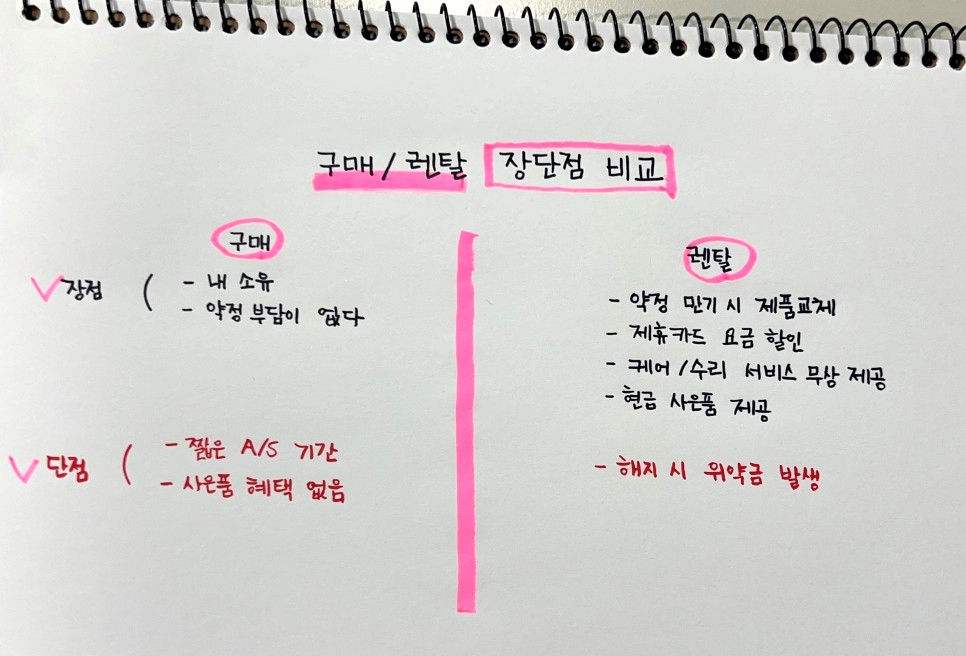 구매 / 렌탈 장단점 비교
구매
장점
- 내 소유
- 약정 부담이 없다
단점
- 짧은 A/S 기간
- 사은품 혜택 없음
렌탈
- 약정 만기 시 제품교체
- 제휴카드 요금 할인
- 케어 / 수리 서비스 무상 제공
- 현금 사은품 제공
- 해지 시 위약금 발생